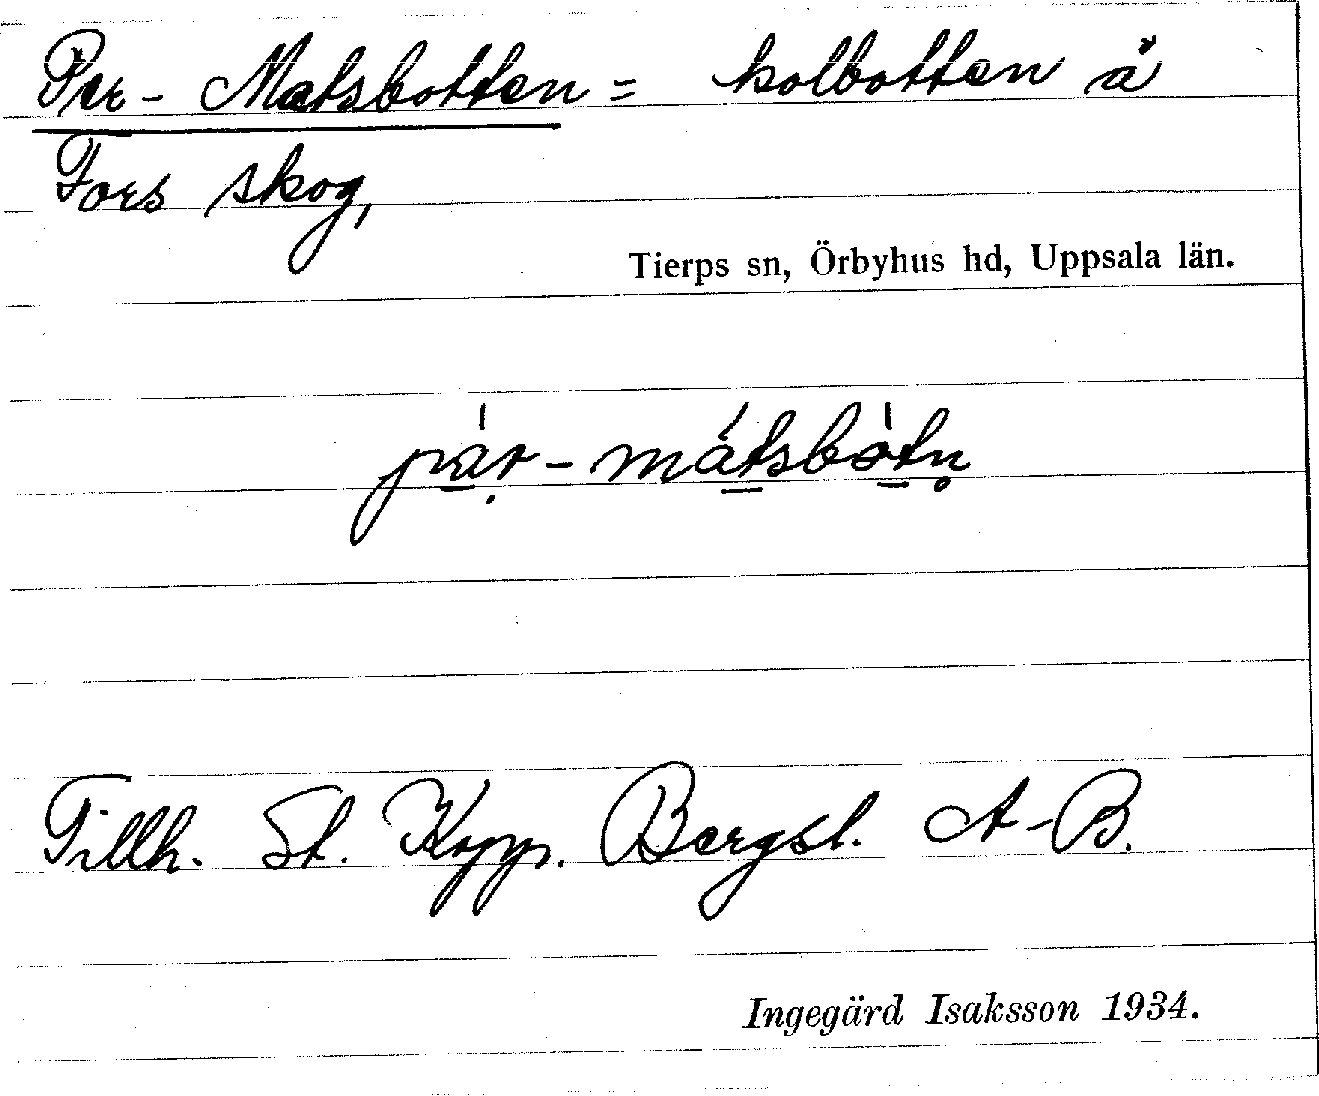 Per-Matsbotten = kolbotten å
Fors skog,
Tierps sn, Örbyhus hd, Uppsala län.
pàṛ-mátsbòtn̥
Tillh. St. Kopp. Bergsl. A-B.
Ingegärd Isaksson 1934.